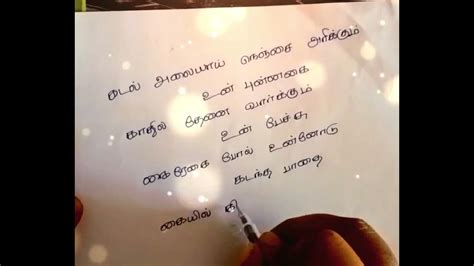 கடல் அலையாய் நெஞ்சை அரிக்கும்
உன் புன்னகை
காதில் தேனை வார்க்கும்
உன் பேச்சு
கைரேகை போல் உன்னோடு
கடந்த பாதை
கையில் கி